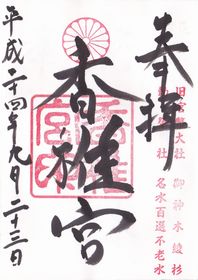 奉拝
旧官幣大社
勅祭社
御神木綾杉
名水百選不老水
香椎宮
平成二十四年九月二十三日